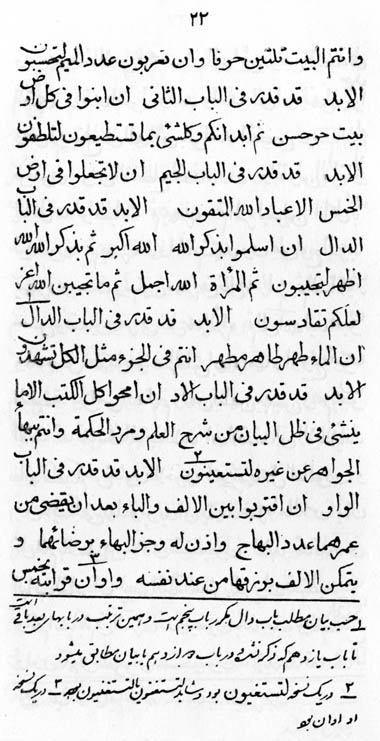 ٢٢
وانتم البيت ثلثين حرفا وان تعربون عدد الميم لتحسبون
الابد قد قدر فى الباب الثانى ان ابنوا فى كل ارض
بيت حر حسن ثم ابدانكم وكلشئ بما تستطيعون لتلطفون
الابد قد قدر فى الباب الجيم ان لا تجعلوا فى ارض
الخمس الا عباد الله المتقون الابد قد قدر فى الباب
الدال ان اسلموا بذكر الله الله اكبر ثم بذكر الله الله
اظهر لتجيبون ثم المرأة الله اجمل ثم ما تجيبن الله اعز
لعلكم تقادسون الابد قد قدر فى الباب الدال ١
ان الماء طهر طاهر مطهر انتم فى الجزء مثل الكل تشهدون
الابد قد قدر فى الباب الاد ان امحوا كل الكتب الا ما
ينشئ فى ظل البيان من شرح العلم ومرد الحكمة وانتم بها
الجواهر عن غيره لتستعينون ٢ الابد قد قدر فى الباب
الواو ان اقتربوا بين الالف والباء بعد ان يقضى من
عمرهما عدد البهاج واذن له وجز البهاء برضائهما و
يتمكن الالف بوزنها من عند نفسه ٣ واوان قرابته بخمس
١ حسب بيان مطلب باب دال مكرر باب پنجم است وهمين ترتيب در بابهاى بعد باقى است
تا باب يازدهم كه ذكر نشده ودر باب دوازدهم با بيان مطابق ميشود
٢ در يك نسخه لتستغنيون بود وشايد لتستغنون يا لتستغنيون بوده ٣ در يك نسخه
او اوان بود